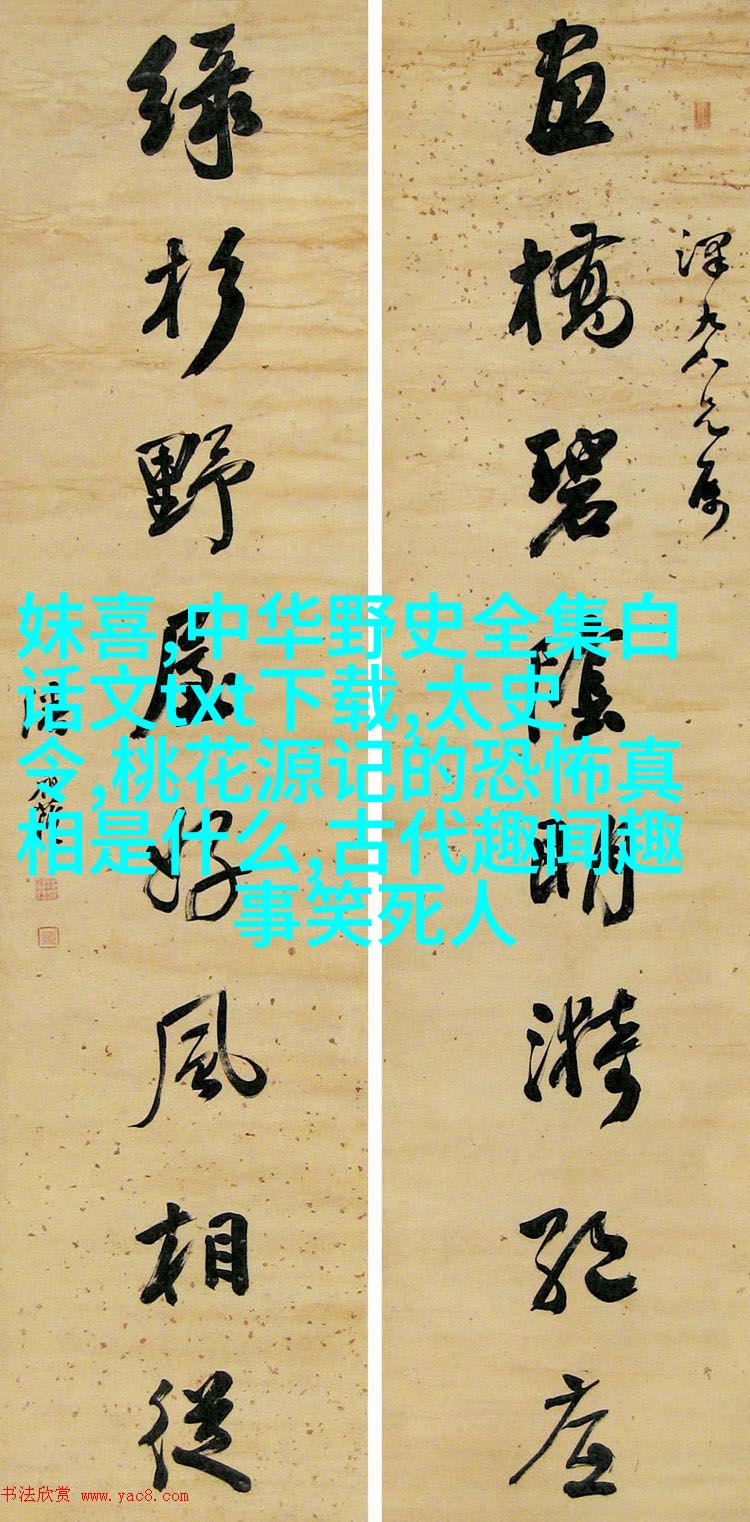 畫橋碧陰明漪絕底
綠杉野屋好風相從
妹喜,中华野史全集白
话文txt下载,太史
令,桃花源记的恐怖真
相是什么,古代趣闻趣
事笑死人
书法欣赏 www.yac8.com